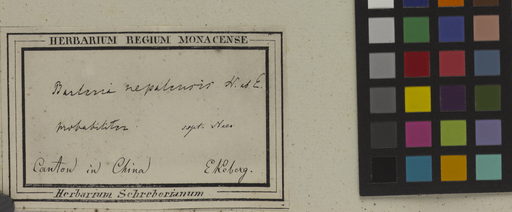 HERBARIUM REGIUM MONACENSE
Barleria nepalensis N. ab E.
probabiliter sept. Nees
Canton in China Ekeberg.
Herbarium Schreberianum